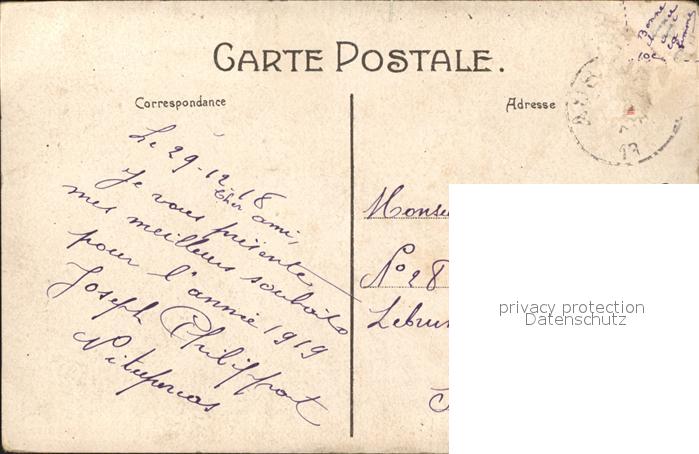 CARTE POSTALE.
Correspondance
Adresse
Le 29-12-18
Cher ami,
Je vous présente
mes meilleurs souhaits
pour l'année 1919
Joseph Philippot
Monsi
N° 28
Lebrun
privacy protection
Datenschutz
Bonne